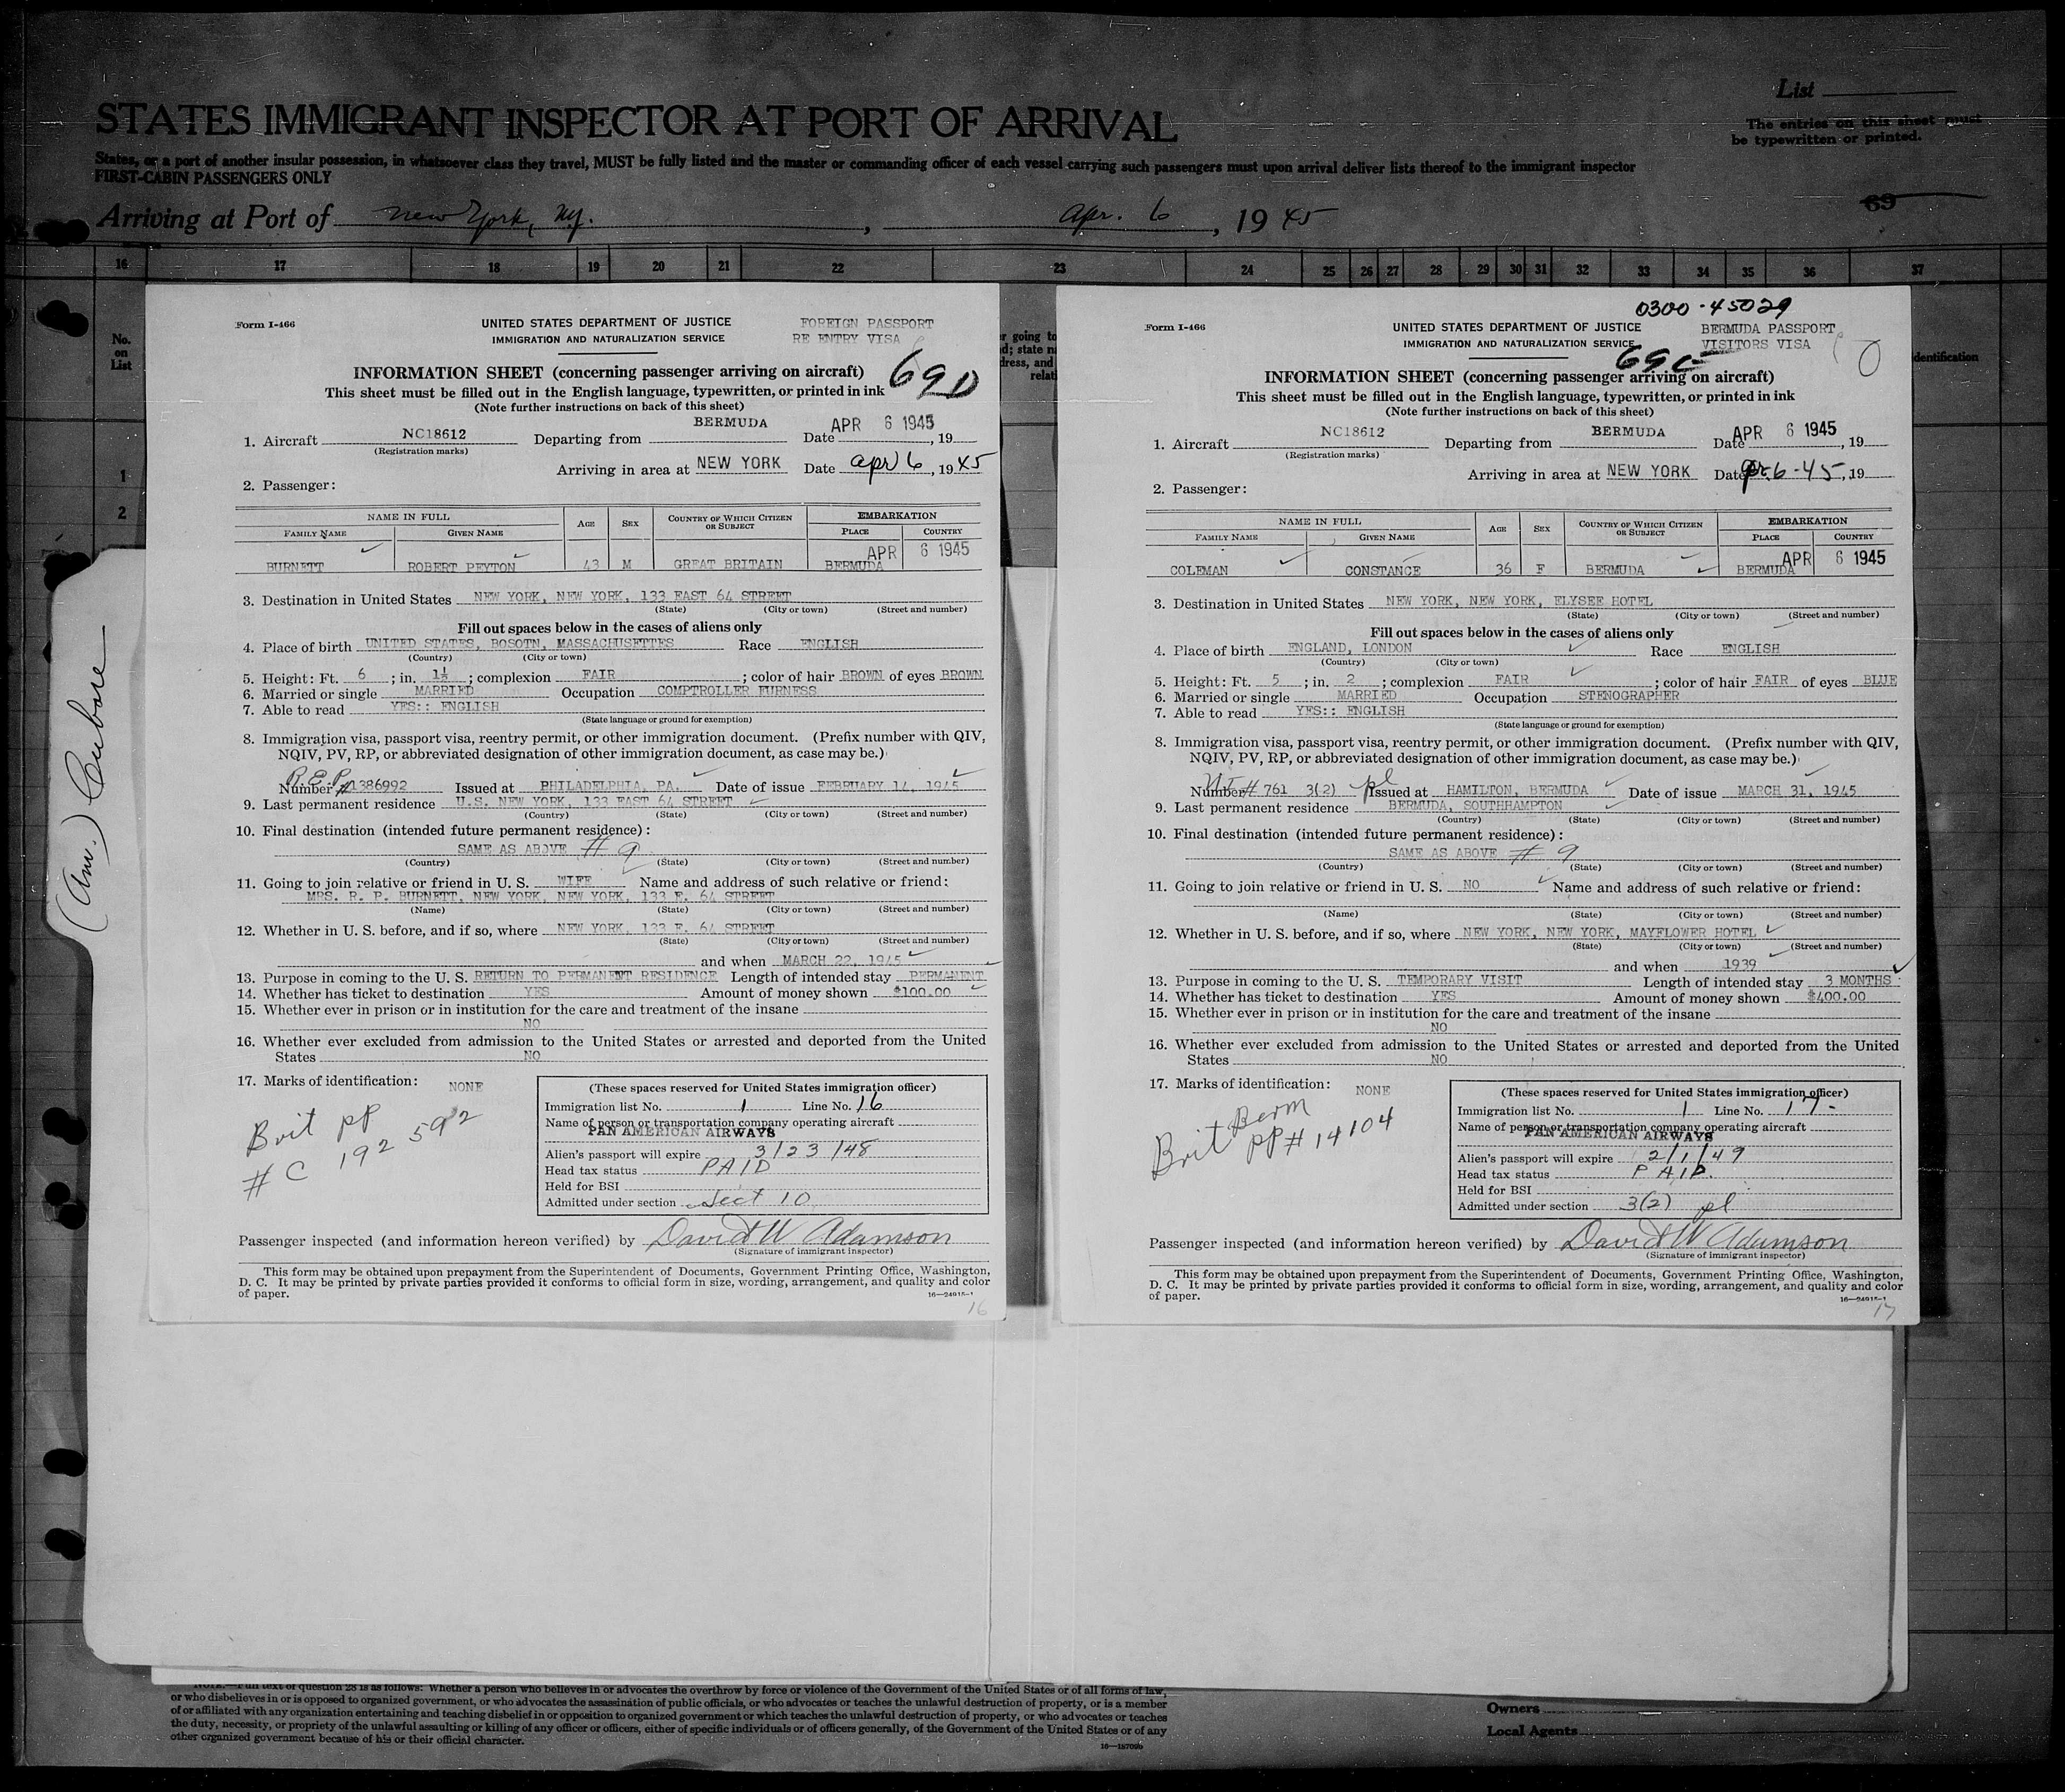 List
The entries on this sheet must
be typewritten or printed.
STATES IMMIGRANT INSPECTOR AT PORT OF ARRIVAL
States, or a port of another insular possession, in whatsoever class they travel, MUST be fully listed and the master or commanding officer of each vessel carrying such passengers must upon arrival deliver lists thereof to the immigrant inspector
FIRST-CABIN PASSENGERS ONLY
69
Arriving at Port of New York, N.Y., Apr. 6, 1945
16 17 18 19 20 21 22 23 24 25 26 27 28 29 30 31 32 33 34 35 36 37
No.
on
List
1
2
(Am.)
Form I-466
UNITED STATES DEPARTMENT OF JUSTICE
IMMIGRATION AND NATURALIZATION SERVICE
FOREIGN PASSPORT
RE ENTRY VISA
69D
INFORMATION SHEET (concerning passenger arriving on aircraft)
This sheet must be filled out in the English language, typewritten, or printed in ink
(Note further instructions on back of this sheet)
1. Aircraft NC18612 Departing from BERMUDA Date APR 6 1945, 19
(Registration marks)
Arriving in area at NEW YORK Date Apr 6, 1945
2. Passenger:
NAME IN FULL AGE SEX COUNTRY OF WHICH CITIZEN OR SUBJECT EMBARKATION
FAMILY NAME GIVEN NAME PLACE COUNTRY
APR 6 1945
BURNETT ROBERT PEYTON 43 M GREAT BRITAIN BERMUDA
3. Destination in United States NEW YORK, NEW YORK, 133 EAST 64 STREET
(State) (City or town) (Street and number)
Fill out spaces below in the cases of aliens only
4. Place of birth UNITED STATES, BOSOTN, MASSACHUSETTES Race ENGLISH
(Country) (City or town)
5. Height: Ft. 6; in. 1½; complexion FAIR; color of hair BROWN of eyes BROWN
6. Married or single MARRIED Occupation COMPTROLLER FURNESS
7. Able to read YES:: ENGLISH
(State language or ground for exemption)
8. Immigration visa, passport visa, reentry permit, or other immigration document. (Prefix number with QIV,
NQIV, PV, RP, or abbreviated designation of other immigration document, as case may be.)
R.E.P.
Number #1386992 Issued at PHILADELPHIA, PA. Date of issue FEBRUARY 14, 1945
9. Last permanent residence U.S. NEW YORK, 133 EAST 64 STREET
(Country) (State) (City or town) (Street and number)
10. Final destination (intended future permanent residence):
SAME AS ABOVE # 9
(Country) (State) (City or town) (Street and number)
11. Going to join relative or friend in U. S. WIFE Name and address of such relative or friend:
MRS. R. P. BURNETT, NEW YORK, NEW YORK, 133 E. 64 STREET
(Name) (State) (City or town) (Street and number)
12. Whether in U. S. before, and if so, where NEW YORK, 133 E. 64 STREET
(State) (City or town) (Street and number)
and when MARCH 22, 1945
13. Purpose in coming to the U. S. RETURN TO PERMANENT RESIDENCE Length of intended stay PERMANENT
14. Whether has ticket to destination YES Amount of money shown $100.00
15. Whether ever in prison or in institution for the care and treatment of the insane
NO
16. Whether ever excluded from admission to the United States or arrested and deported from the United
States NO
17. Marks of identification: NONE
Brit PP
# C 192 592
(These spaces reserved for United States immigration officer)
Immigration list No. 1 Line No. 16
Name of person or transportation company operating aircraft
PAN AMERICAN AIRWAYS
Alien's passport will expire 3/23/48
Head tax status PAID
Held for BSI
Admitted under section Sect 10
Passenger inspected (and information hereon verified) by David W Adamson
(Signature of immigrant inspector)
This form may be obtained upon prepayment from the Superintendent of Documents, Government Printing Office, Washington,
D. C. It may be printed by private parties provided it conforms to official form in size, wording, arrangement, and quality and color
of paper.
16—24915-1
16
0300-45029
Form I-466
UNITED STATES DEPARTMENT OF JUSTICE
IMMIGRATION AND NATURALIZATION SERVICE
BERMUDA PASSPORT
VISITORS VISA
69C
INFORMATION SHEET (concerning passenger arriving on aircraft)
This sheet must be filled out in the English language, typewritten, or printed in ink
(Note further instructions on back of this sheet)
1. Aircraft NC18612 Departing from BERMUDA Date APR 6 1945, 19
(Registration marks)
Arriving in area at NEW YORK Date Apr. 6-45, 19
2. Passenger:
NAME IN FULL AGE SEX COUNTRY OF WHICH CITIZEN OR SUBJECT EMBARKATION
FAMILY NAME GIVEN NAME PLACE COUNTRY
APR 6 1945
COLEMAN CONSTANCE 36 F BERMUDA BERMUDA
3. Destination in United States NEW YORK, NEW YORK, ELYSEE HOTEL
(State) (City or town) (Street and number)
Fill out spaces below in the cases of aliens only
4. Place of birth ENGLAND, LONDON Race ENGLISH
(Country) (City or town)
5. Height: Ft. 5; in. 2; complexion FAIR; color of hair FAIR of eyes BLUE
6. Married or single MARRIED Occupation STENOGRAPHER
7. Able to read YES:: ENGLISH
(State language or ground for exemption)
8. Immigration visa, passport visa, reentry permit, or other immigration document. (Prefix number with QIV,
NQIV, PV, RP, or abbreviated designation of other immigration document, as case may be.)
Number # 761 3(2) pl Issued at HAMILTON, BERMUDA Date of issue MARCH 31, 1945
9. Last permanent residence BERMUDA, SOUTHHAMPTON
(Country) (State) (City or town) (Street and number)
10. Final destination (intended future permanent residence):
SAME AS ABOVE # 9
(Country) (State) (City or town) (Street and number)
11. Going to join relative or friend in U. S. NO Name and address of such relative or friend:
(Name) (State) (City or town) (Street and number)
12. Whether in U. S. before, and if so, where NEW YORK, NEW YORK, MAYFLOWER HOTEL
(State) (City or town) (Street and number)
and when 1939
13. Purpose in coming to the U. S. TEMPORARY VISIT Length of intended stay 3 MONTHS
14. Whether has ticket to destination YES Amount of money shown $400.00
15. Whether ever in prison or in institution for the care and treatment of the insane
NO
16. Whether ever excluded from admission to the United States or arrested and deported from the United
States NO
17. Marks of identification: NONE
Brit Berm
PP# 14104
(These spaces reserved for United States immigration officer)
Immigration list No. 1 Line No. 17-
Name of person or transportation company operating aircraft
PAN AMERICAN AIRWAYS
Alien's passport will expire 2/1/49
Head tax status PAID.
Held for BSI
Admitted under section 3(2) pl
Passenger inspected (and information hereon verified) by David W Adamson
(Signature of immigrant inspector)
This form may be obtained upon prepayment from the Superintendent of Documents, Government Printing Office, Washington,
D. C. It may be printed by private parties provided it conforms to official form in size, wording, arrangement, and quality and color
of paper.
16—24915-1
17
NOTE.—Full text of question 28 is as follows: Whether a person who believes in or advocates the overthrow by force or violence of the Government of the United States or of all forms of law,
or who disbelieves in or is opposed to organized government, or who advocates the assassination of public officials, or who advocates or teaches the unlawful destruction of property, or is a member
of or affiliated with any organization entertaining and teaching disbelief in or opposition to organized government or which teaches the unlawful destruction of property, or who advocates or teaches
the duty, necessity, or propriety of the unlawful assaulting or killing of any officer or officers, either of specific individuals or of officers generally, of the Government of the United States or of any
other organized government because of his or their official character.
Owners
Local Agents